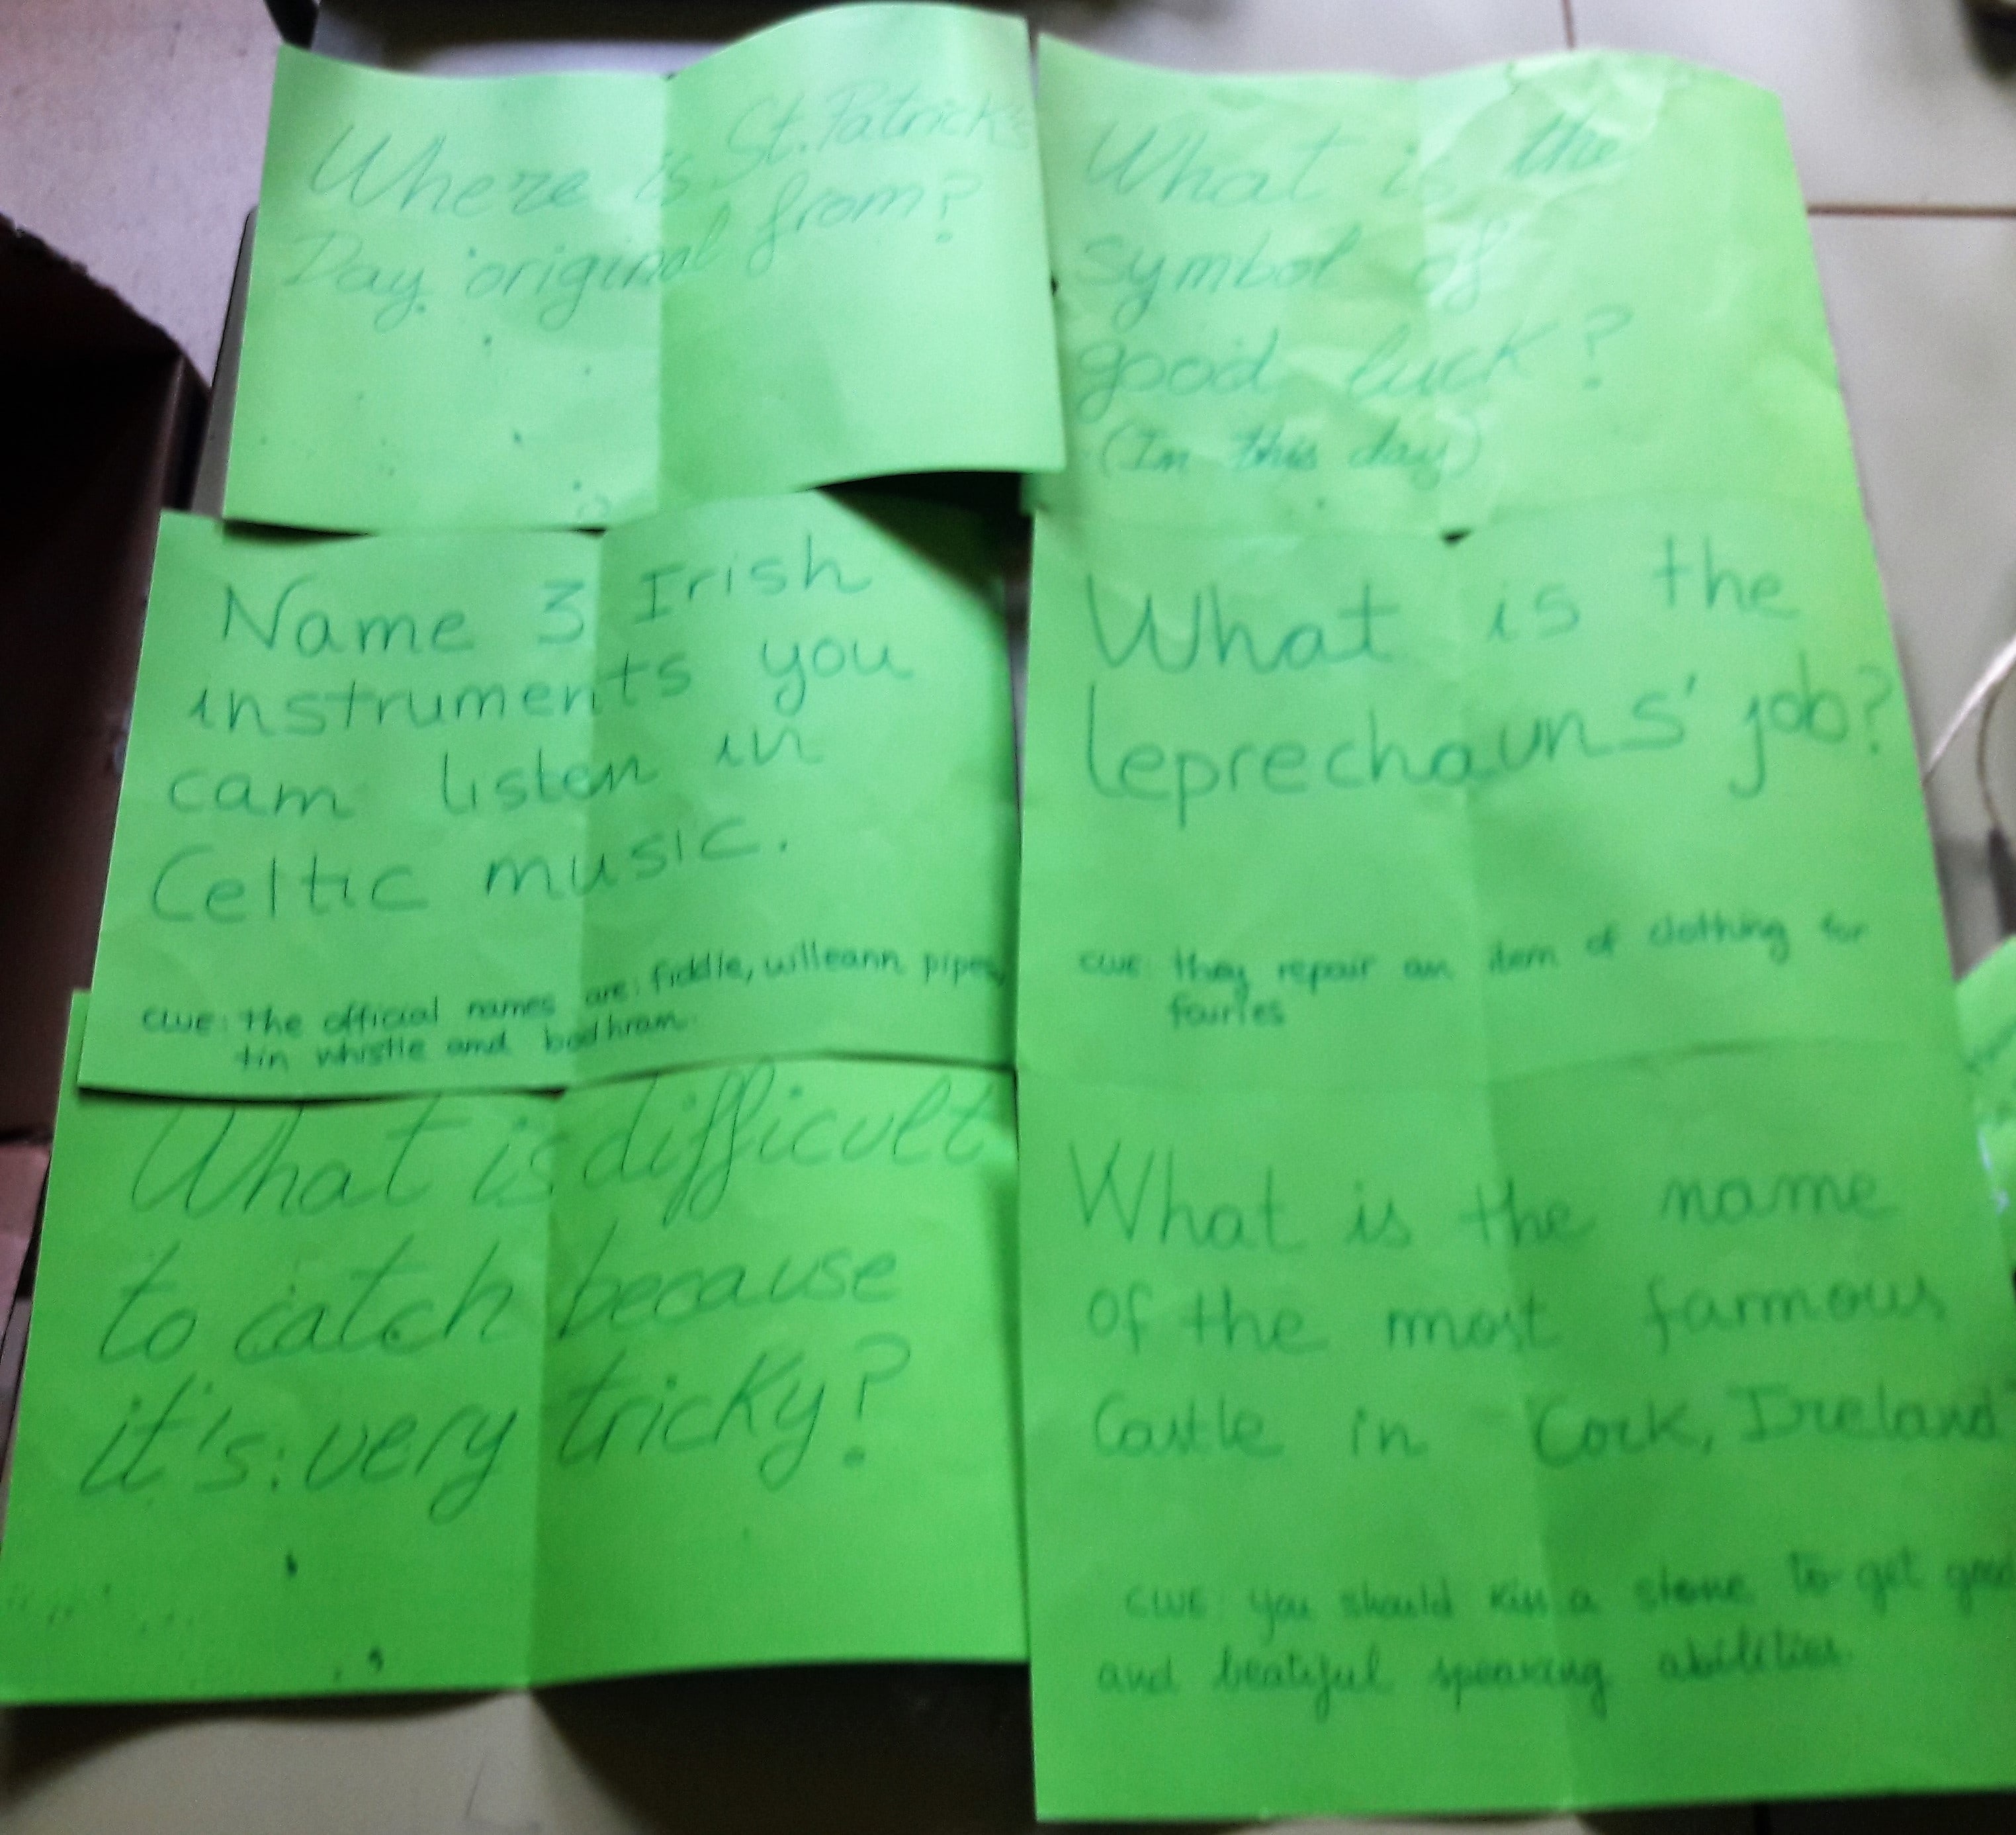 Where is St. Patrick's
Day original from?
What is the
symbol of
good luck?
(In this day)
Name 3 Irish
instruments you
cam listen in
Celtic music.
CLUE: the official names are: fiddle, uilleann pipes,
tin whistle and bodhram.
What is the
leprechauns' job?
CLUE: they repair an item of clothing for
fairies
What is difficult
to catch because
it's very tricky?
What is the name
of the most farmous
Castle in Cork, Ireland?
CLUE: you should kiss a stone to get good
and beatiful speaking abilities.